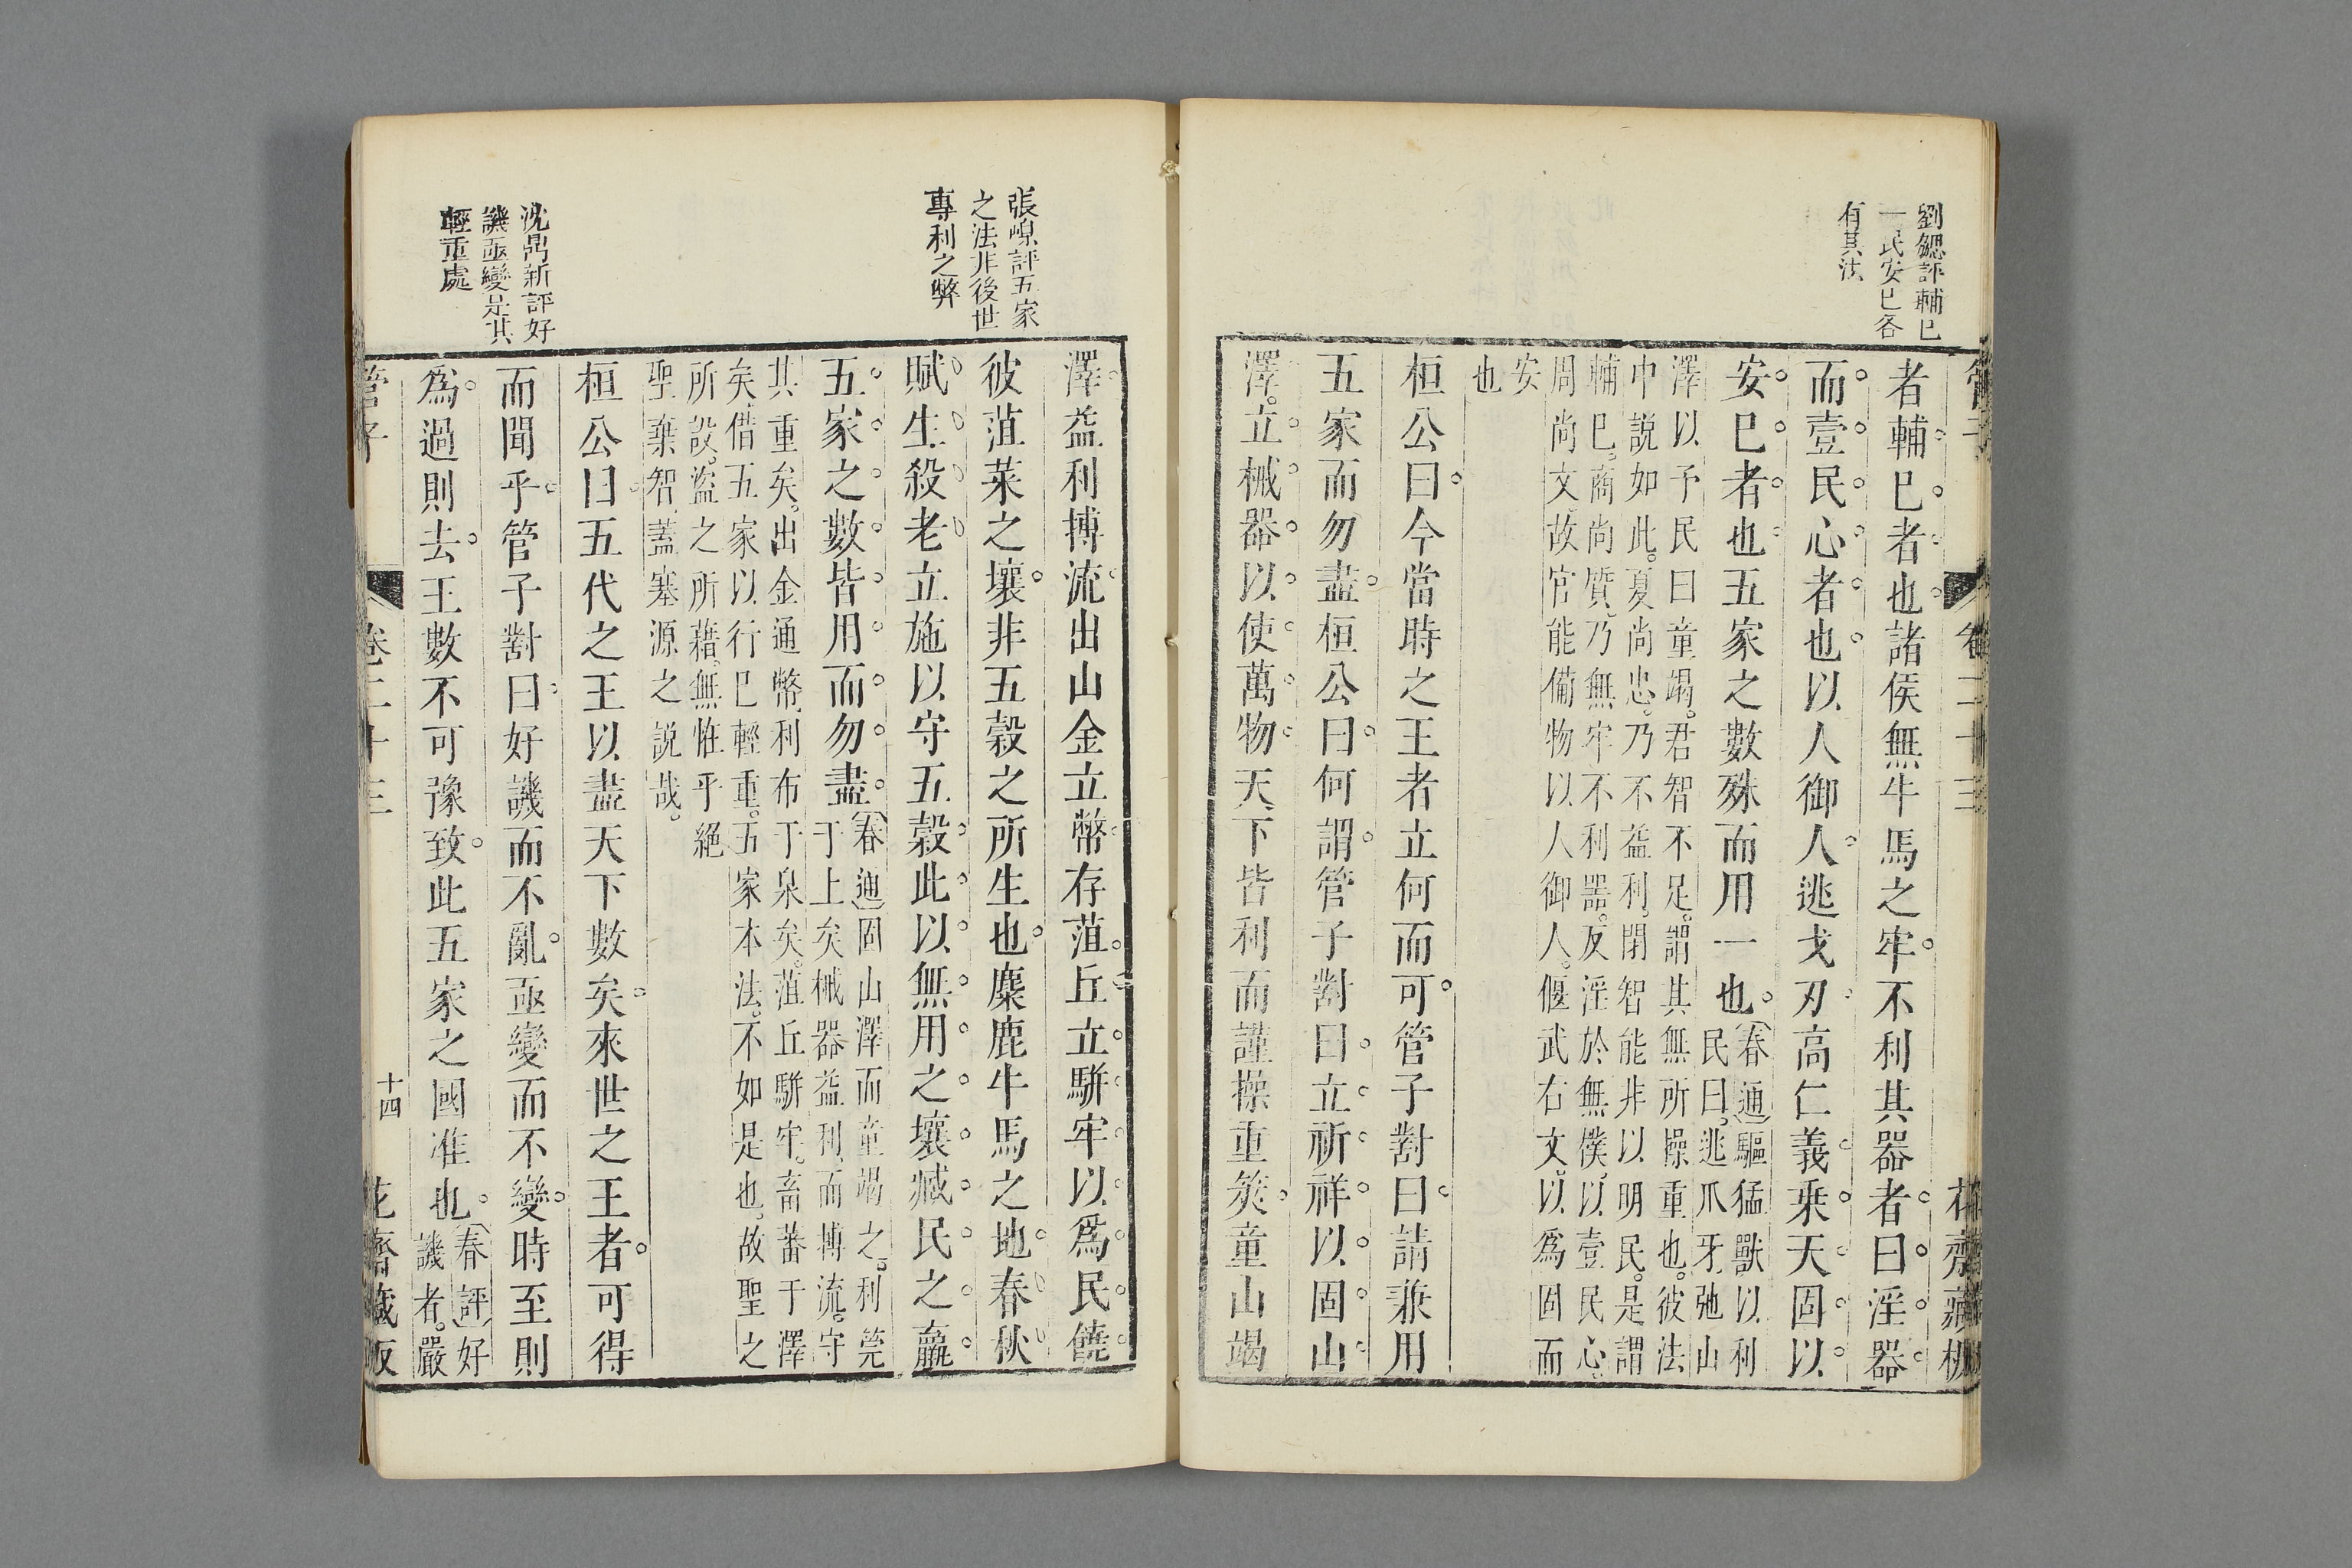 劉勰評輔巳
一民安巳各
有其法
管子
卷二十三
花齋藏板
者輔巳者也諸侯無牛馬之牢不利其器者曰淫器
而壹民心者也以人御人逃戈刃高仁義乘天固以
安巳者也五家之數殊而用一也
(春通)驅猛獸以利
民曰逃爪牙弛山
澤以予民曰童竭君智不足謂其無所操重也彼法
中説如此夏尚忠乃不益利閉智能非以明民是謂
輔巳商尚質乃無牢不利噐反淫於無僕以壹民心
周尚文故官能備物以人御人偃武右文以為固而
安
也
桓公曰今當時之王者立何而可管子對曰請兼用
五家而勿盡桓公曰何謂管子對曰立祈祥以固山
澤立械器以使萬物天下皆利而謹操重筴童山竭
張嵲評五家
之法非後世
專利之弊
沈鼎新評好
譏亟變是其
輕重處
澤益利搏流出山金立幣存菹丘立駢牢以爲民饒
彼菹菜之壤非五穀之所生也麋鹿牛馬之地春秋
賦生殺老立施以守五穀此以無用之壤臧民之羸
五家之數皆用而勿盡
(春通)固山澤而童竭之利筦
于上矣械器益利而搏流守
其重矣出金通幣利布于泉矣菹丘駢牢畜蕃于澤
矣借五家以行巳輕重五家本法不如是也故聖之
所設盜之所藉無惟乎絕
聖棄智蓋塞源之説哉
桓公曰五代之王以盡天下數矣來世之王者可得
而聞乎管子對曰好譏而不亂亟變而不變時至則
爲過則去王數不可豫致此五家之國准也
(春評)好
譏者嚴
管子
卷二十三
十四
花齋藏板